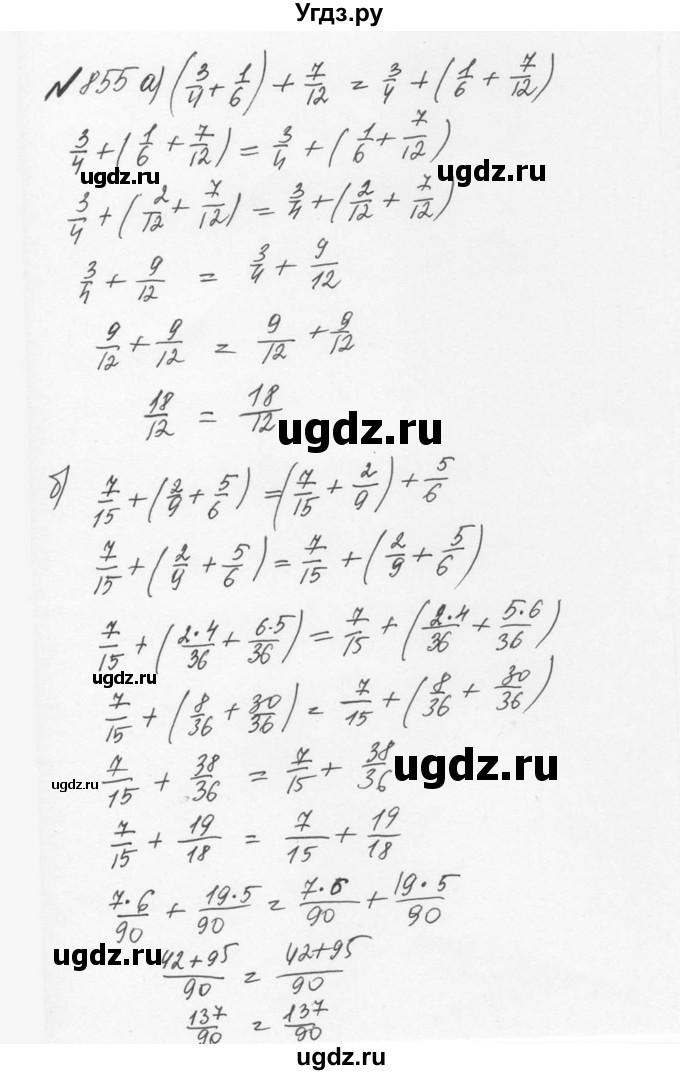 Угдз.ру
№855 а) (3/4 + 1/6) + 7/12 = 3/4 + (1/6 + 7/12)
3/4 + (1/6 + 7/12) = 3/4 + (1/6 + 7/12)
ugdz.ru ugdz.ru
3/4 + (2/12 + 7/12) = 3/4 + (2/12 + 7/12)
3/4 + 9/12 = 3/4 + 9/12
9/12 + 9/12 = 9/12 + 9/12
18/12 = 18/12
ugdz.ru
б) 7/15 + (2/9 + 5/6) = (7/15 + 2/9) + 5/6
7/15 + (2/9 + 5/6) = 7/15 + (2/9 + 5/6)
7/15 + (2·4/36 + 6·5/36) = 7/15 + (2·4/36 + 5·6/36)
ugdz.ru
7/15 + (8/36 + 30/36) = 7/15 + (8/36 + 30/36)
7/15 + 38/36 = 7/15 + 38/36
ugdz.ru ugdz.ru
7/15 + 19/18 = 7/15 + 19/18
7·6/90 + 19·5/90 = 7·6/90 + 19·5/90
42+95/90 = 42+95/90
ugdz.ru
137/90 = 137/90
ugdz.ru